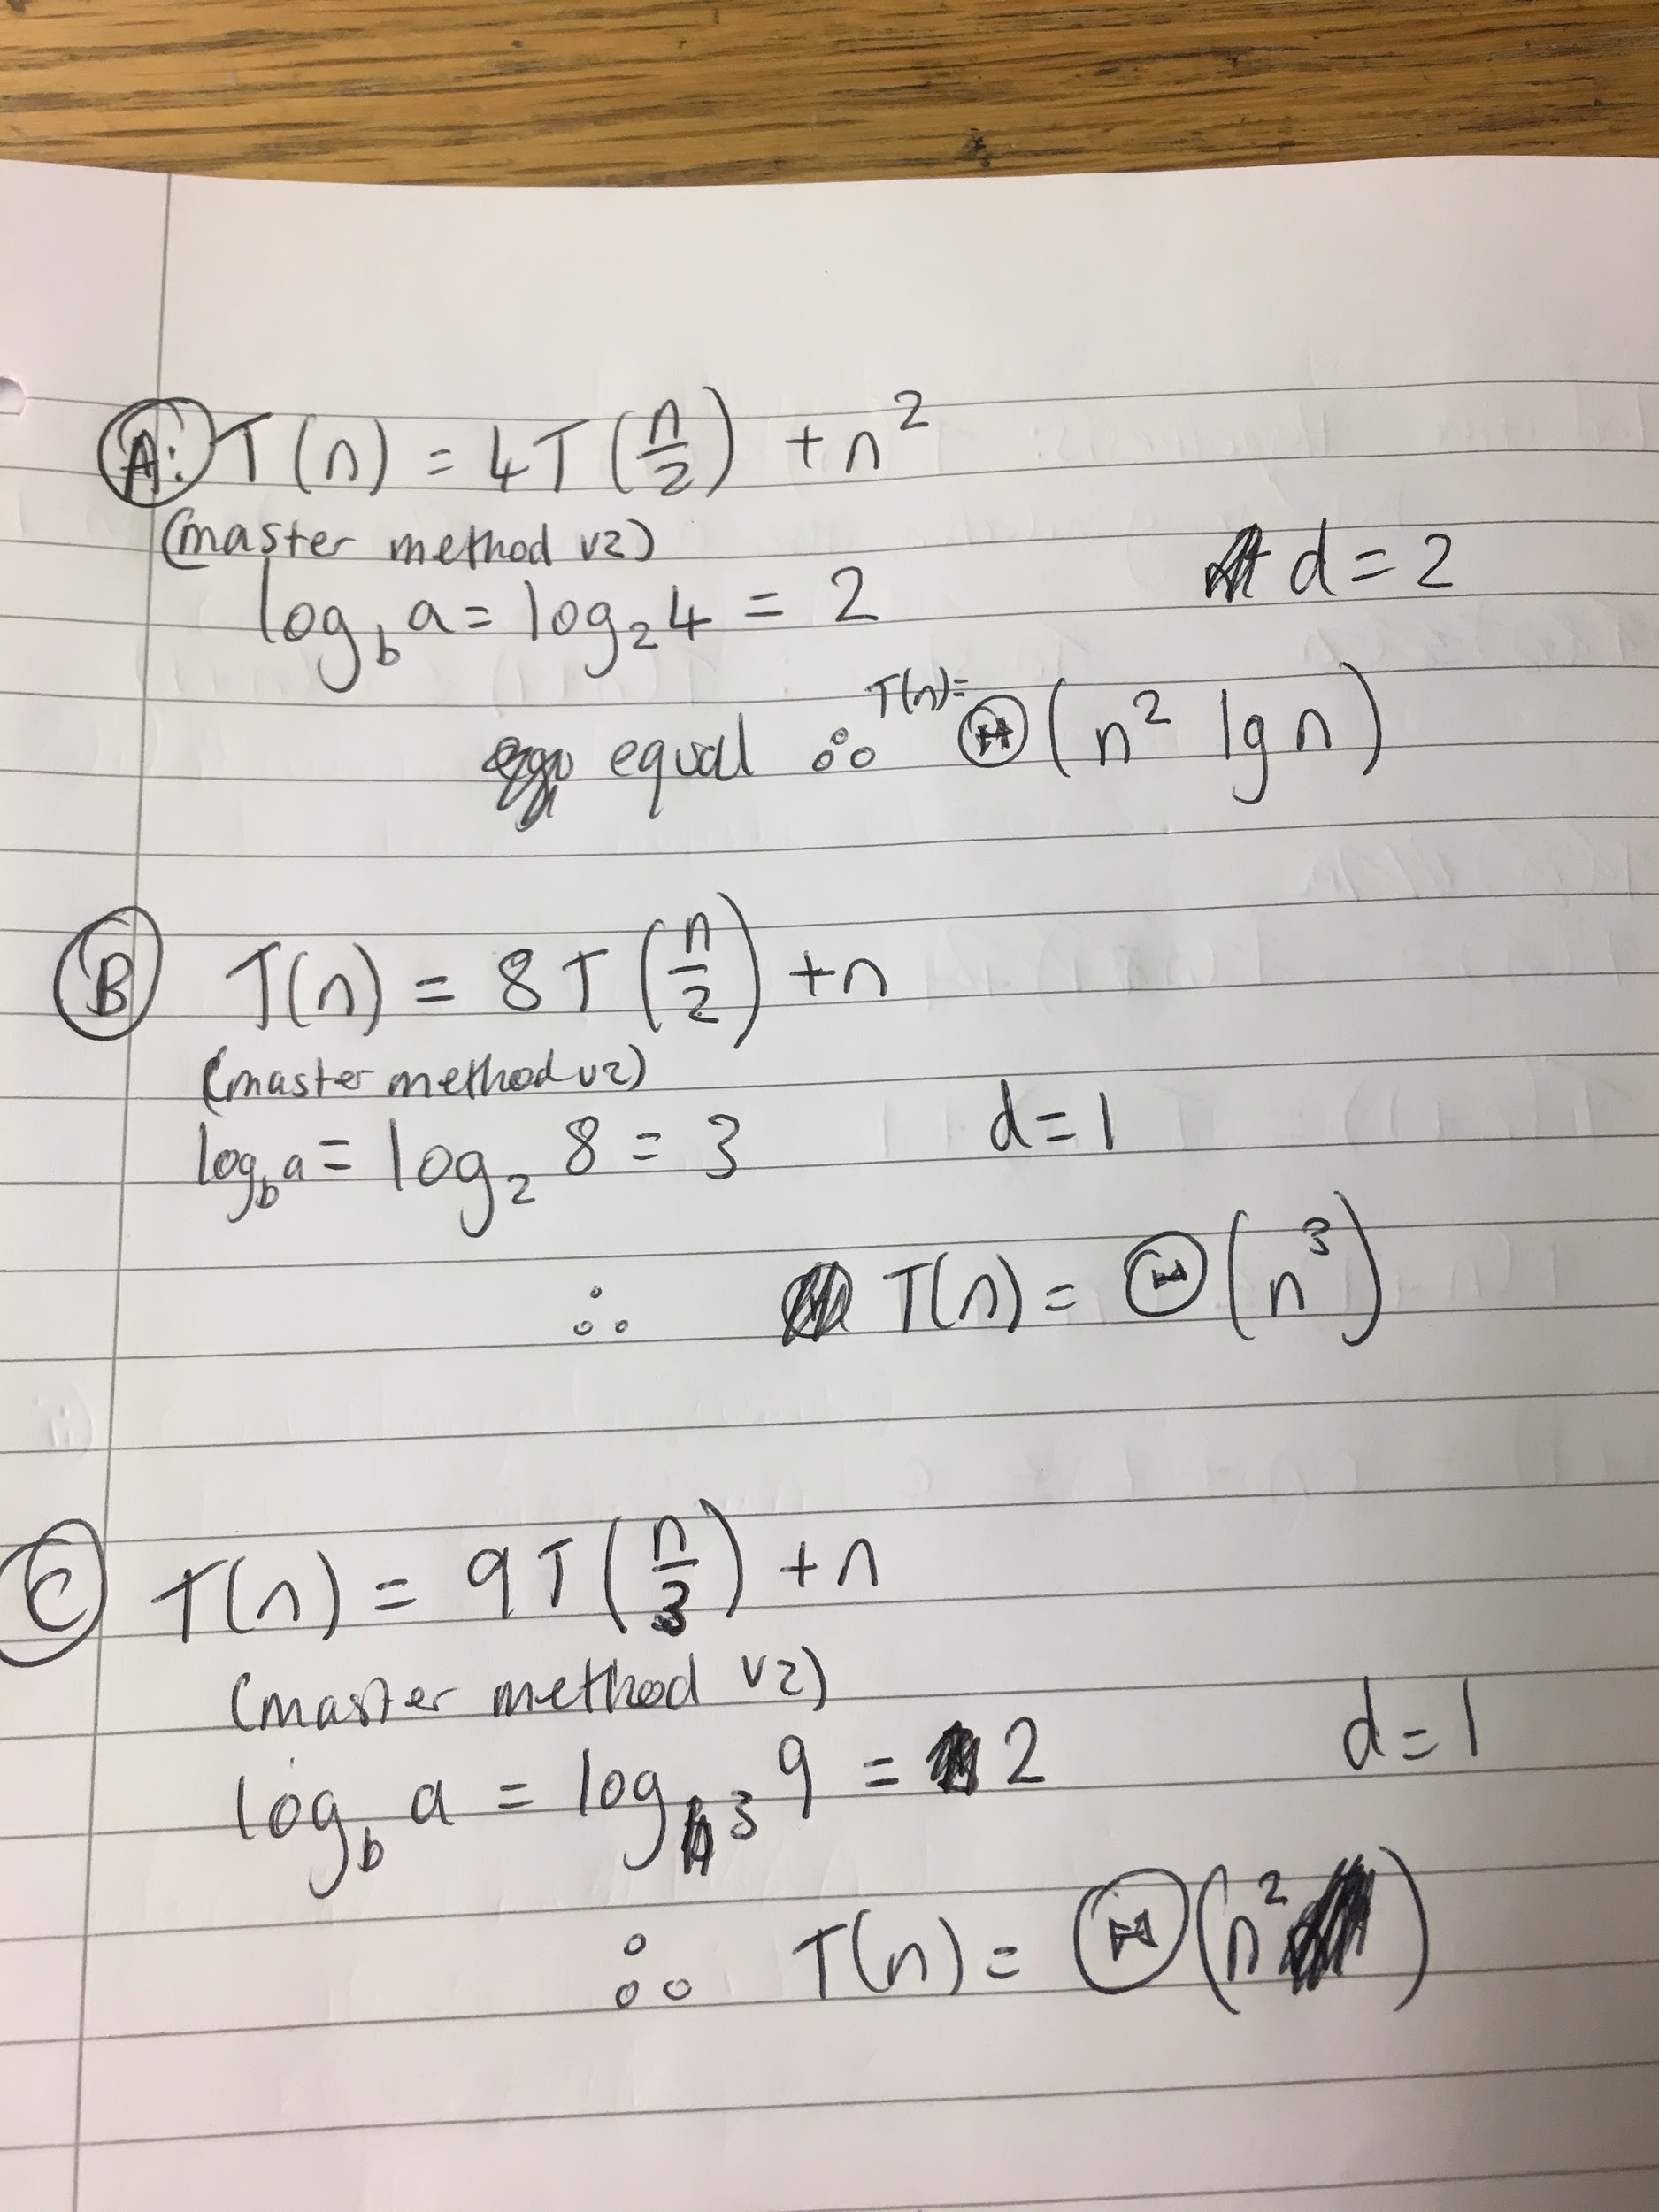 A: T(n) = 4T(n/2) + n²
(master method v2)
log_b a = log₂ 4 = 2 d = 2
equal ∴ T(n) = Θ(n² lg n)
B T(n) = 8T(n/2) + n
(master method v2)
log_b a = log₂ 8 = 3 d = 1
∴ T(n) = Θ(n³)
C T(n) = 9T(n/3) + n
(master method v2)
log_b a = log₃ 9 = 2 d = 1
∴ T(n) = Θ(n²)